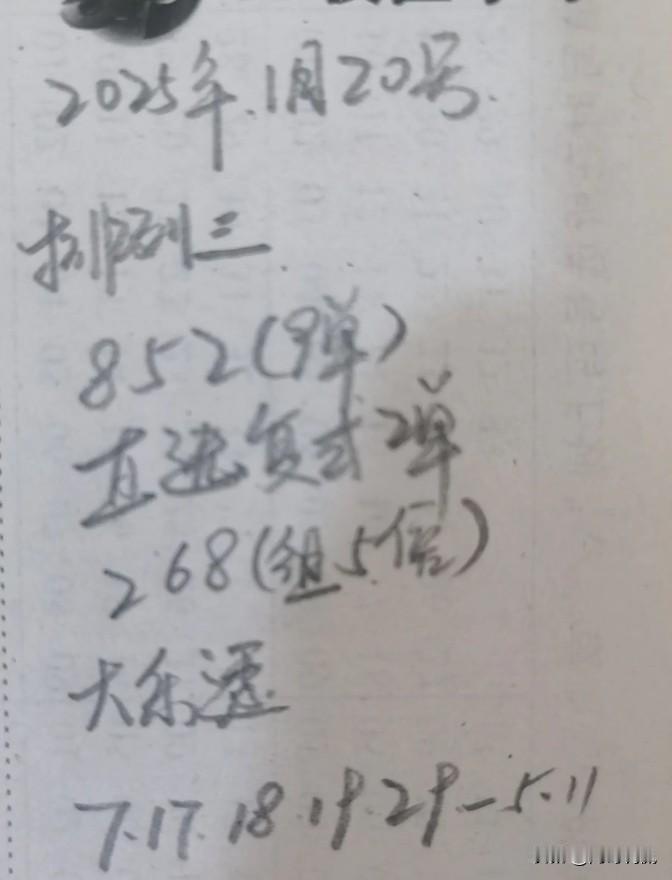 2025年.1月20号.
排列三
852(9单)
直选复式2单
268(组5倍)
大乐透
7.17.18.19.29-5.11